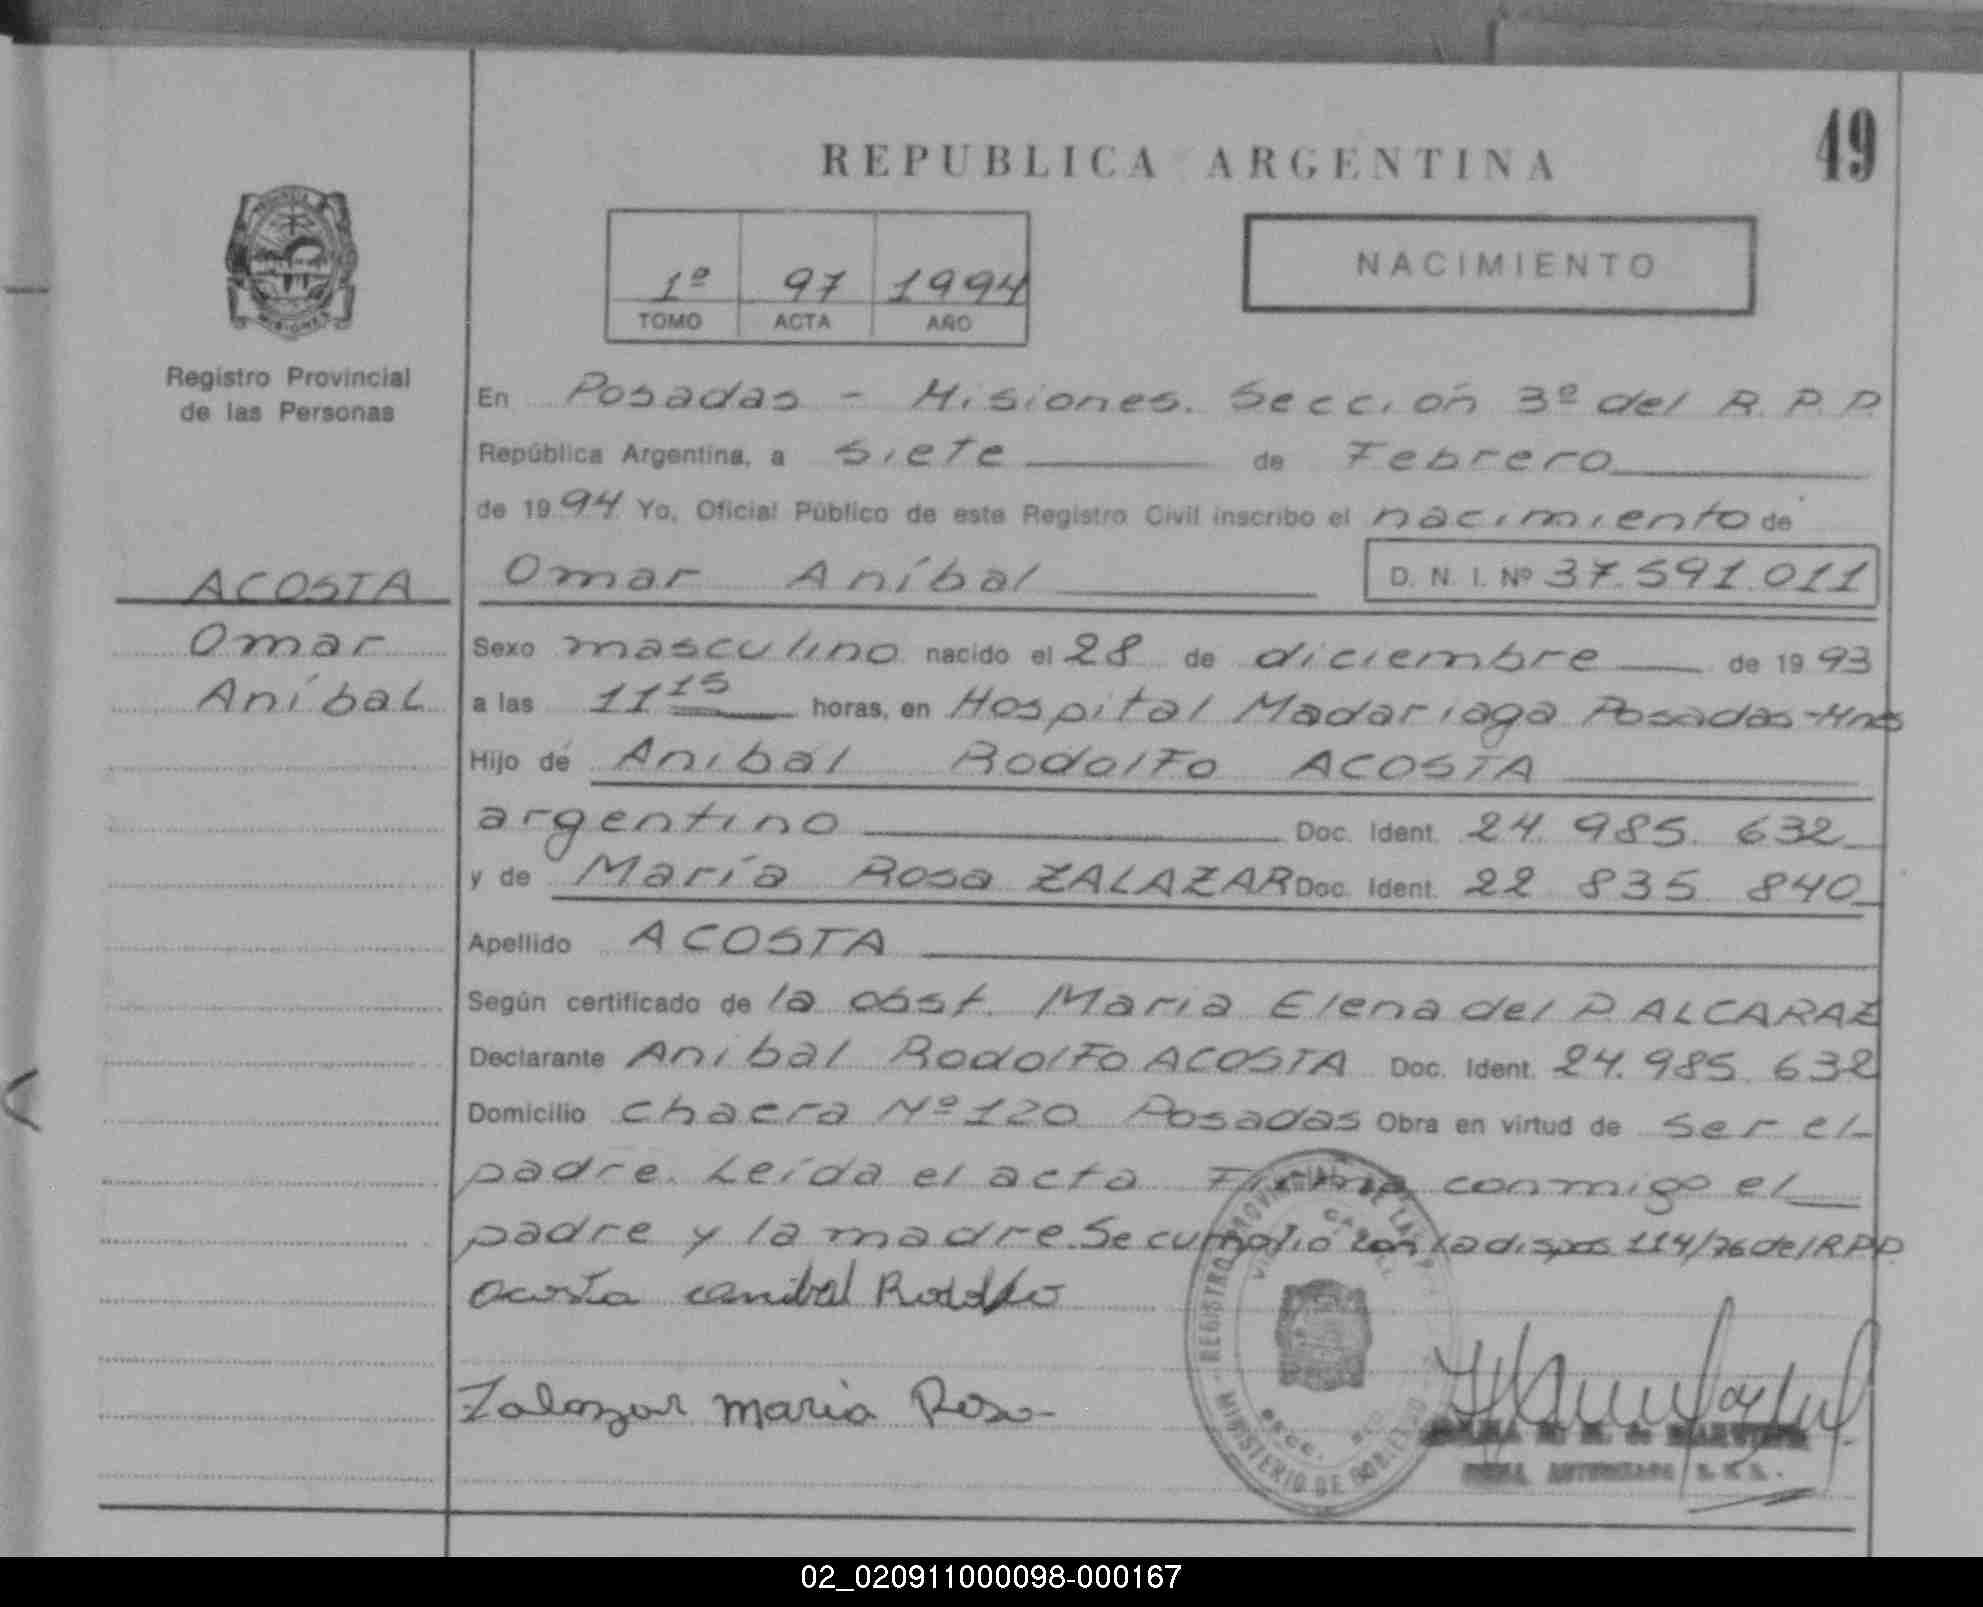 49
REPUBLICA ARGENTINA
1º 97 1994
TOMO ACTA AÑO
NACIMIENTO
MISIONES
Registro Provincial
de las Personas
En Posadas - Misiones. Sección 3º del R.P.P.
República Argentina, a siete de Febrero
de 1994 Yo, Oficial Público de este Registro Civil inscribo el nacimiento de
ACOSTA
Omar Aníbal D. N. I. Nº 37.591.011
Omar
Sexo masculino nacido el 28 de diciembre de 1993
Aníbal
a las 11 15 horas, en Hospital Madariaga Posadas-Mnes
Hijo de Anibal Rodolfo ACOSTA
argentino Doc. Ident. 24.985.632
y de María Rosa ZALAZAR Doc. Ident. 22 835 840
Apellido ACOSTA
Según certificado de la obst. Maria Elena del P. ALCARAZ
Declarante Anibal Rodolfo ACOSTA Doc. Ident. 24.985.632
Domicilio chacra Nº 120 Posadas Obra en virtud de ser el
padre. Leída el acta Firma conmigo el
padre y la madre. Se cumplio con la dispos 114/76 del R.P.P.
Acosta Anibal Rodolfo
Zalazar maria Rosa
REGISTRO PROVINCIAL DE LAS
MINISTERIO DE GOBIERNO
02_020911000098-000167